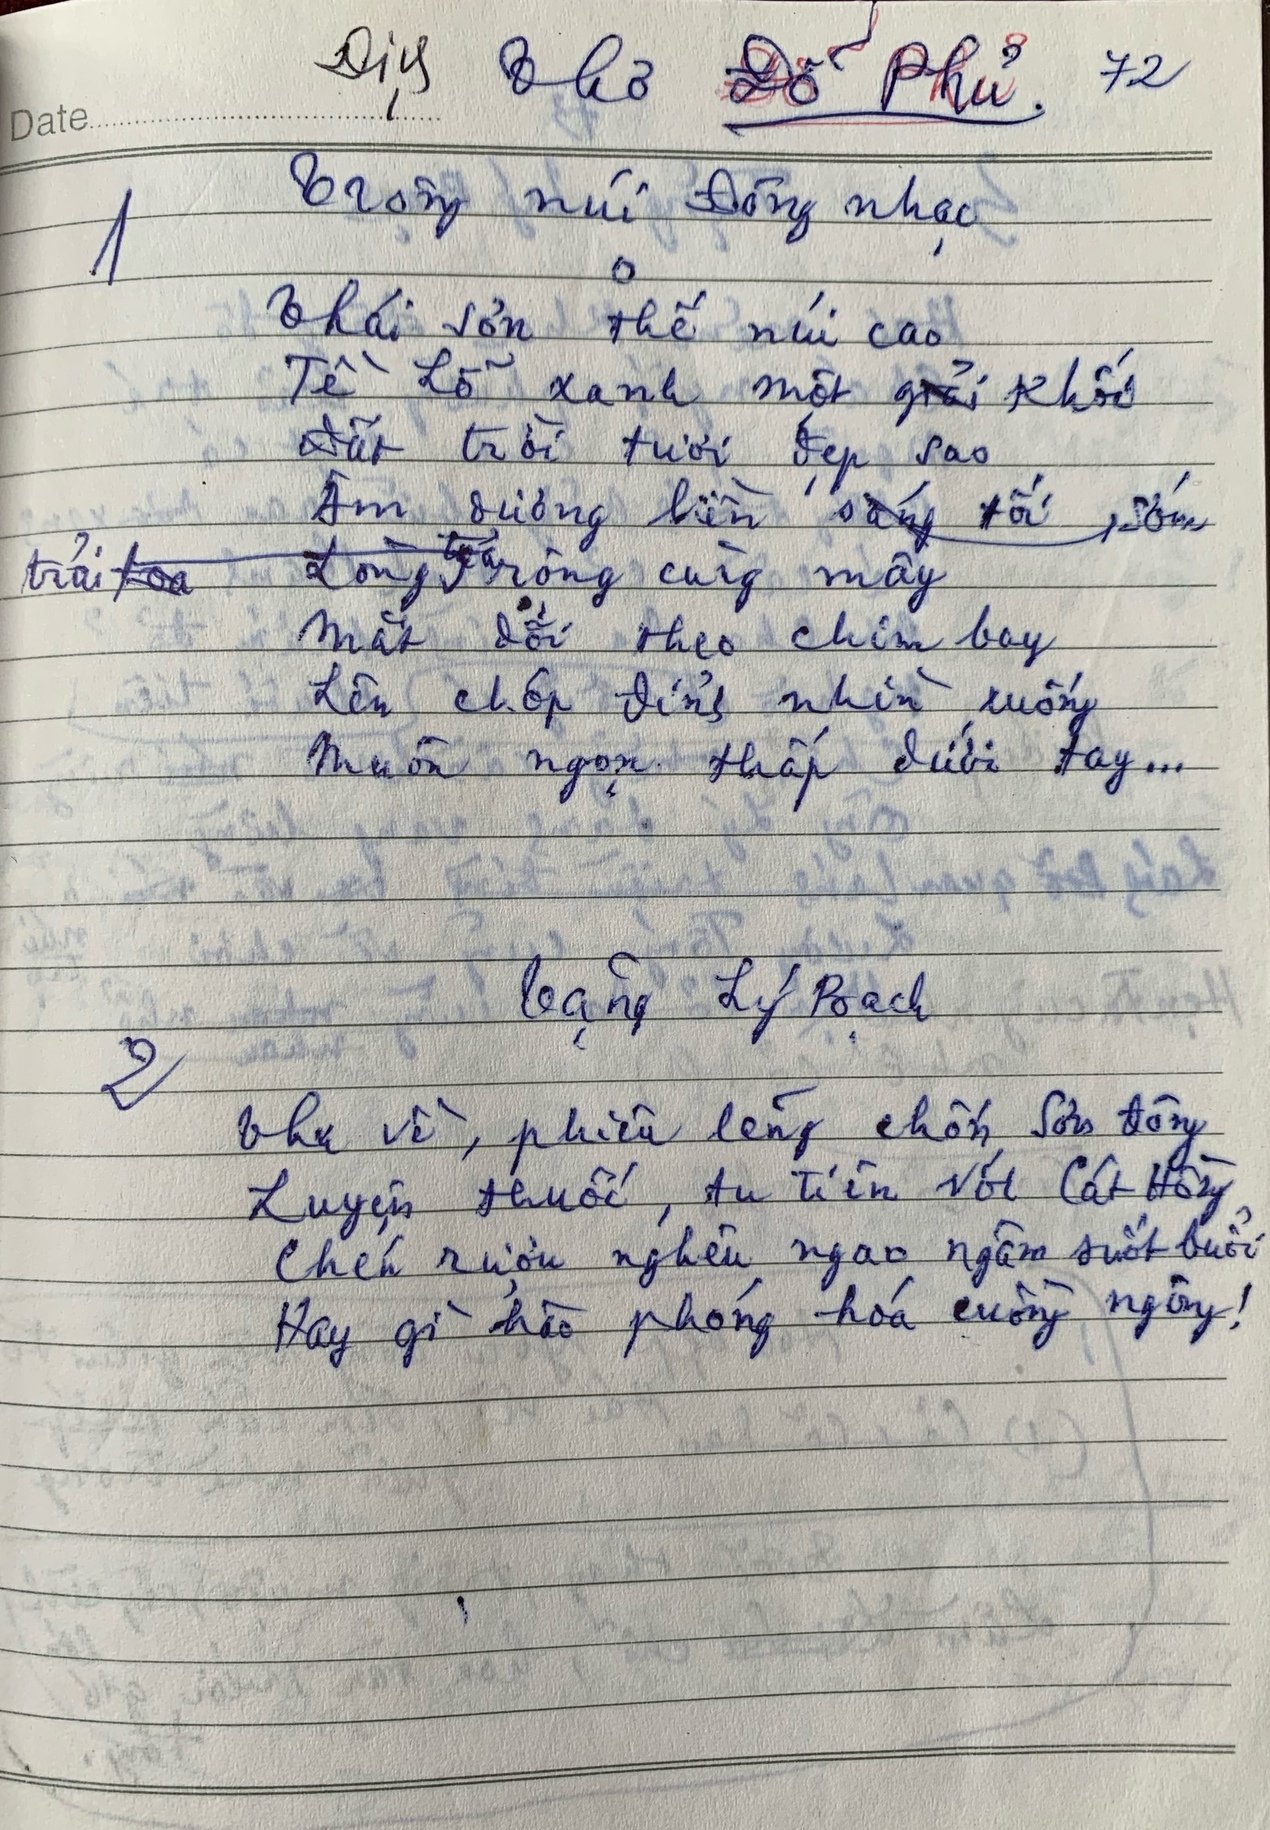 Dịch thơ Đỗ Phủ. 72
Date
1
Trong núi Đông nhạc
Thái sơn thế núi cao
Tề Lỗ xanh một giải khói
Đất trời tươi đẹp sao
Âm dương biền sáng tối sớm
trải toa Lòng trải rộng cùng mây
Mắt dõi theo chim bay
Lên chóp đỉnh nhìn xuống
Muôn ngọn thấp dưới tay...
tặng Lý Bạch
2
Thu về, phiêu lãng chốn Sơn đông
Luyện thuốc, tu tiên với Cát Hồng
Chén rượu nghêu ngao ngâm suốt buổi
Hay gì hào phóng hoá cuồng ngông!